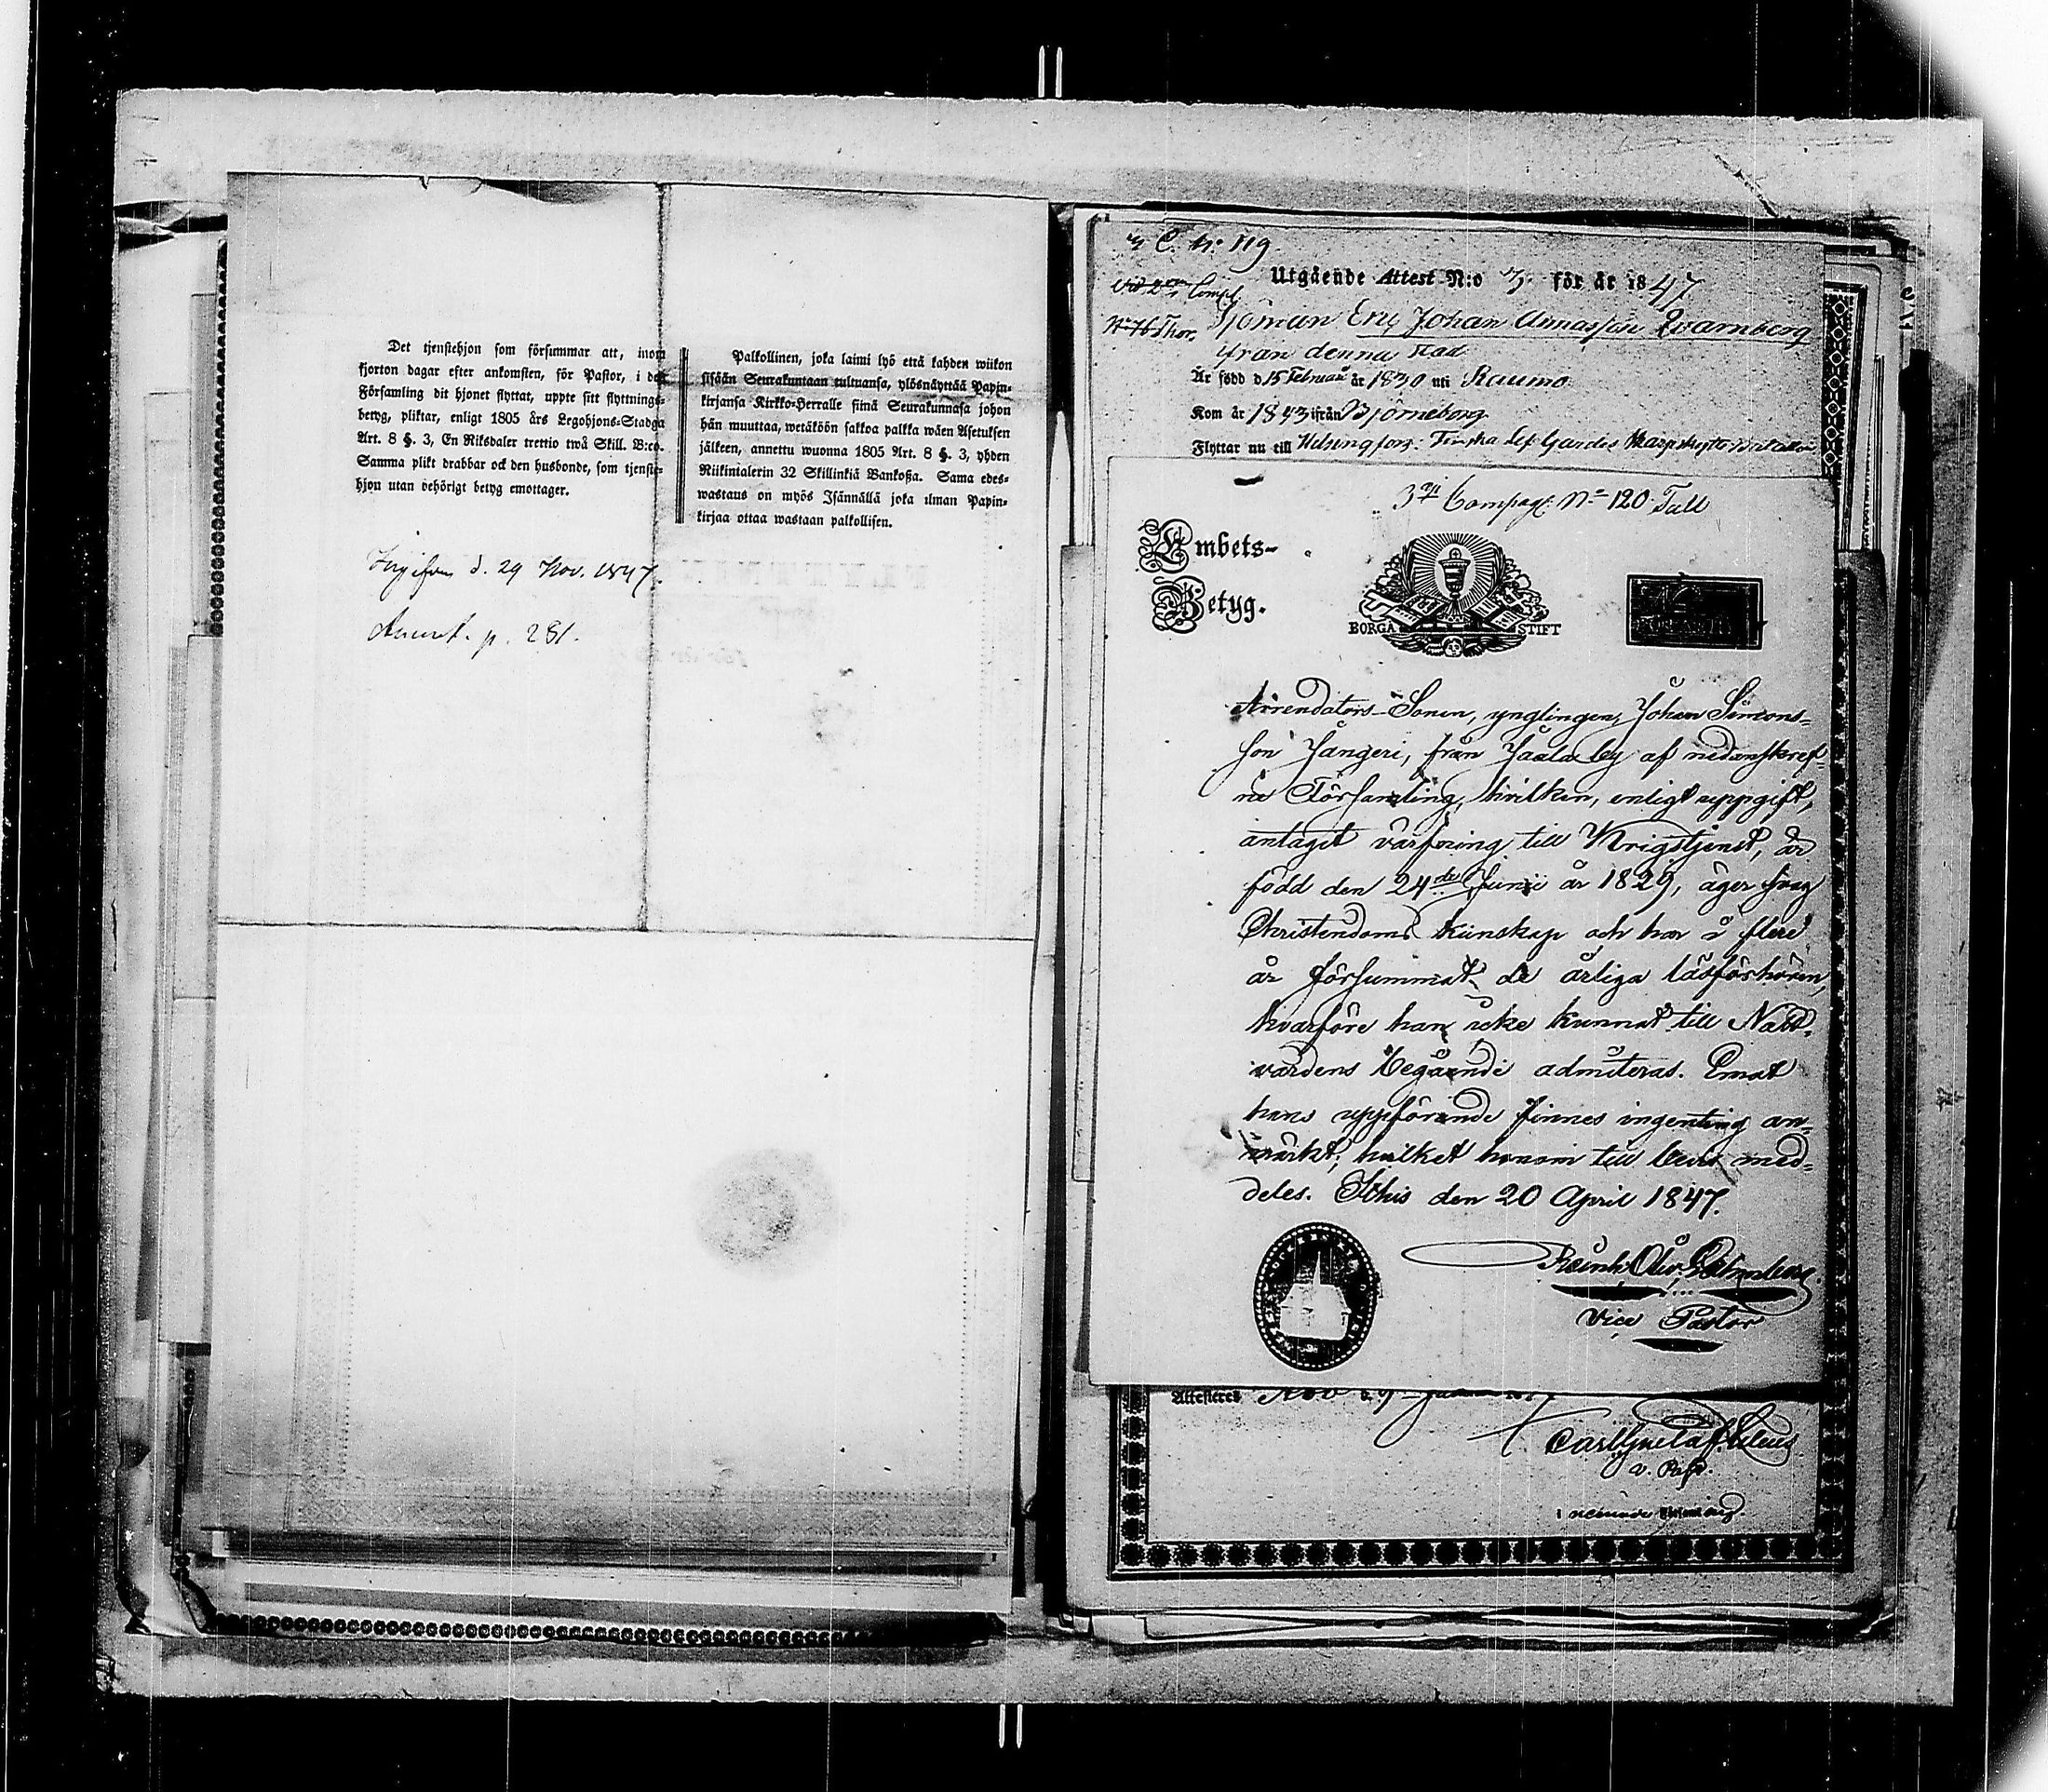 Det tjenstehjon som försummar att, inom
fjorton dagar efter ankomsten, för Pastor, i den
Församling dit hjonet flyttat, uppte sitt flyttnings-
betyg, pliktar, enligt 1805 års Legohjons-Stadga
Art. 8 §. 3, En Riksdaler trettio twå Skill. B:co.
Samma plikt drabbar ock den husbonde, som tjenste-
hjon utan behörigt betyg emottager.
Palkollinen, joka laimi lyö että kahden wiikon
sisään Seurakuntaan tultuansa, ylösnäyttää Papin-
kirjansa Kirkko-Herralle siinä Seurakunnasa johon
hän muuttaa, wetäköön sakkoa palkka wäen Asetuksen
jälkeen, annettu wuonna 1805 Art. 8 §. 3, yhden
Riikintalerin 32 Skillinkiä Bankoßa. Sama edes-
wastaus on myös Isännällä joka ilman Papin-
kirjaa ottaa wastaan palkollisen.
d. 29 Nov. 1847.
p. 281.
C. N:o 119
Utgående Attest N:o 3 för år 1847
Vid 2:en Comp.
N:o 76 Thor.
Sjöman Eric Johan Annasson Qvarnberg
från denna stad
Är född d 15 Februari år 1830 uti Raumo
Kom år 1843 ifrån Björneborg
Flyttar nu till Helsingfors: Finska Lif Gardes Skarpskytte Bataillon
3:dje Compag: N:o 120 Tall
Embets-
Betyg.
BORGÅ STIFT
Arrendators-Sonen, ynglingen, Johan Simons-
son Jangeri, från Jaala by af nedanskref-
ne Församling, hvilken, enligt uppgift,
antagit värfning till Krigstjenst, är
född den 24de Junii år 1829, äger svag
Christendoms kunskap och har i flere
år försummat de årliga läsförhören,
hvarföre han icke kunnat till Natt-
vardens begående admitteras. Emot
hans uppförande finnes ingenting an-
märkt; hvilket honom till bevis med-
deles. Ithis den 20 April 1847.
Vice Pastor
Attesteras
v. Past.